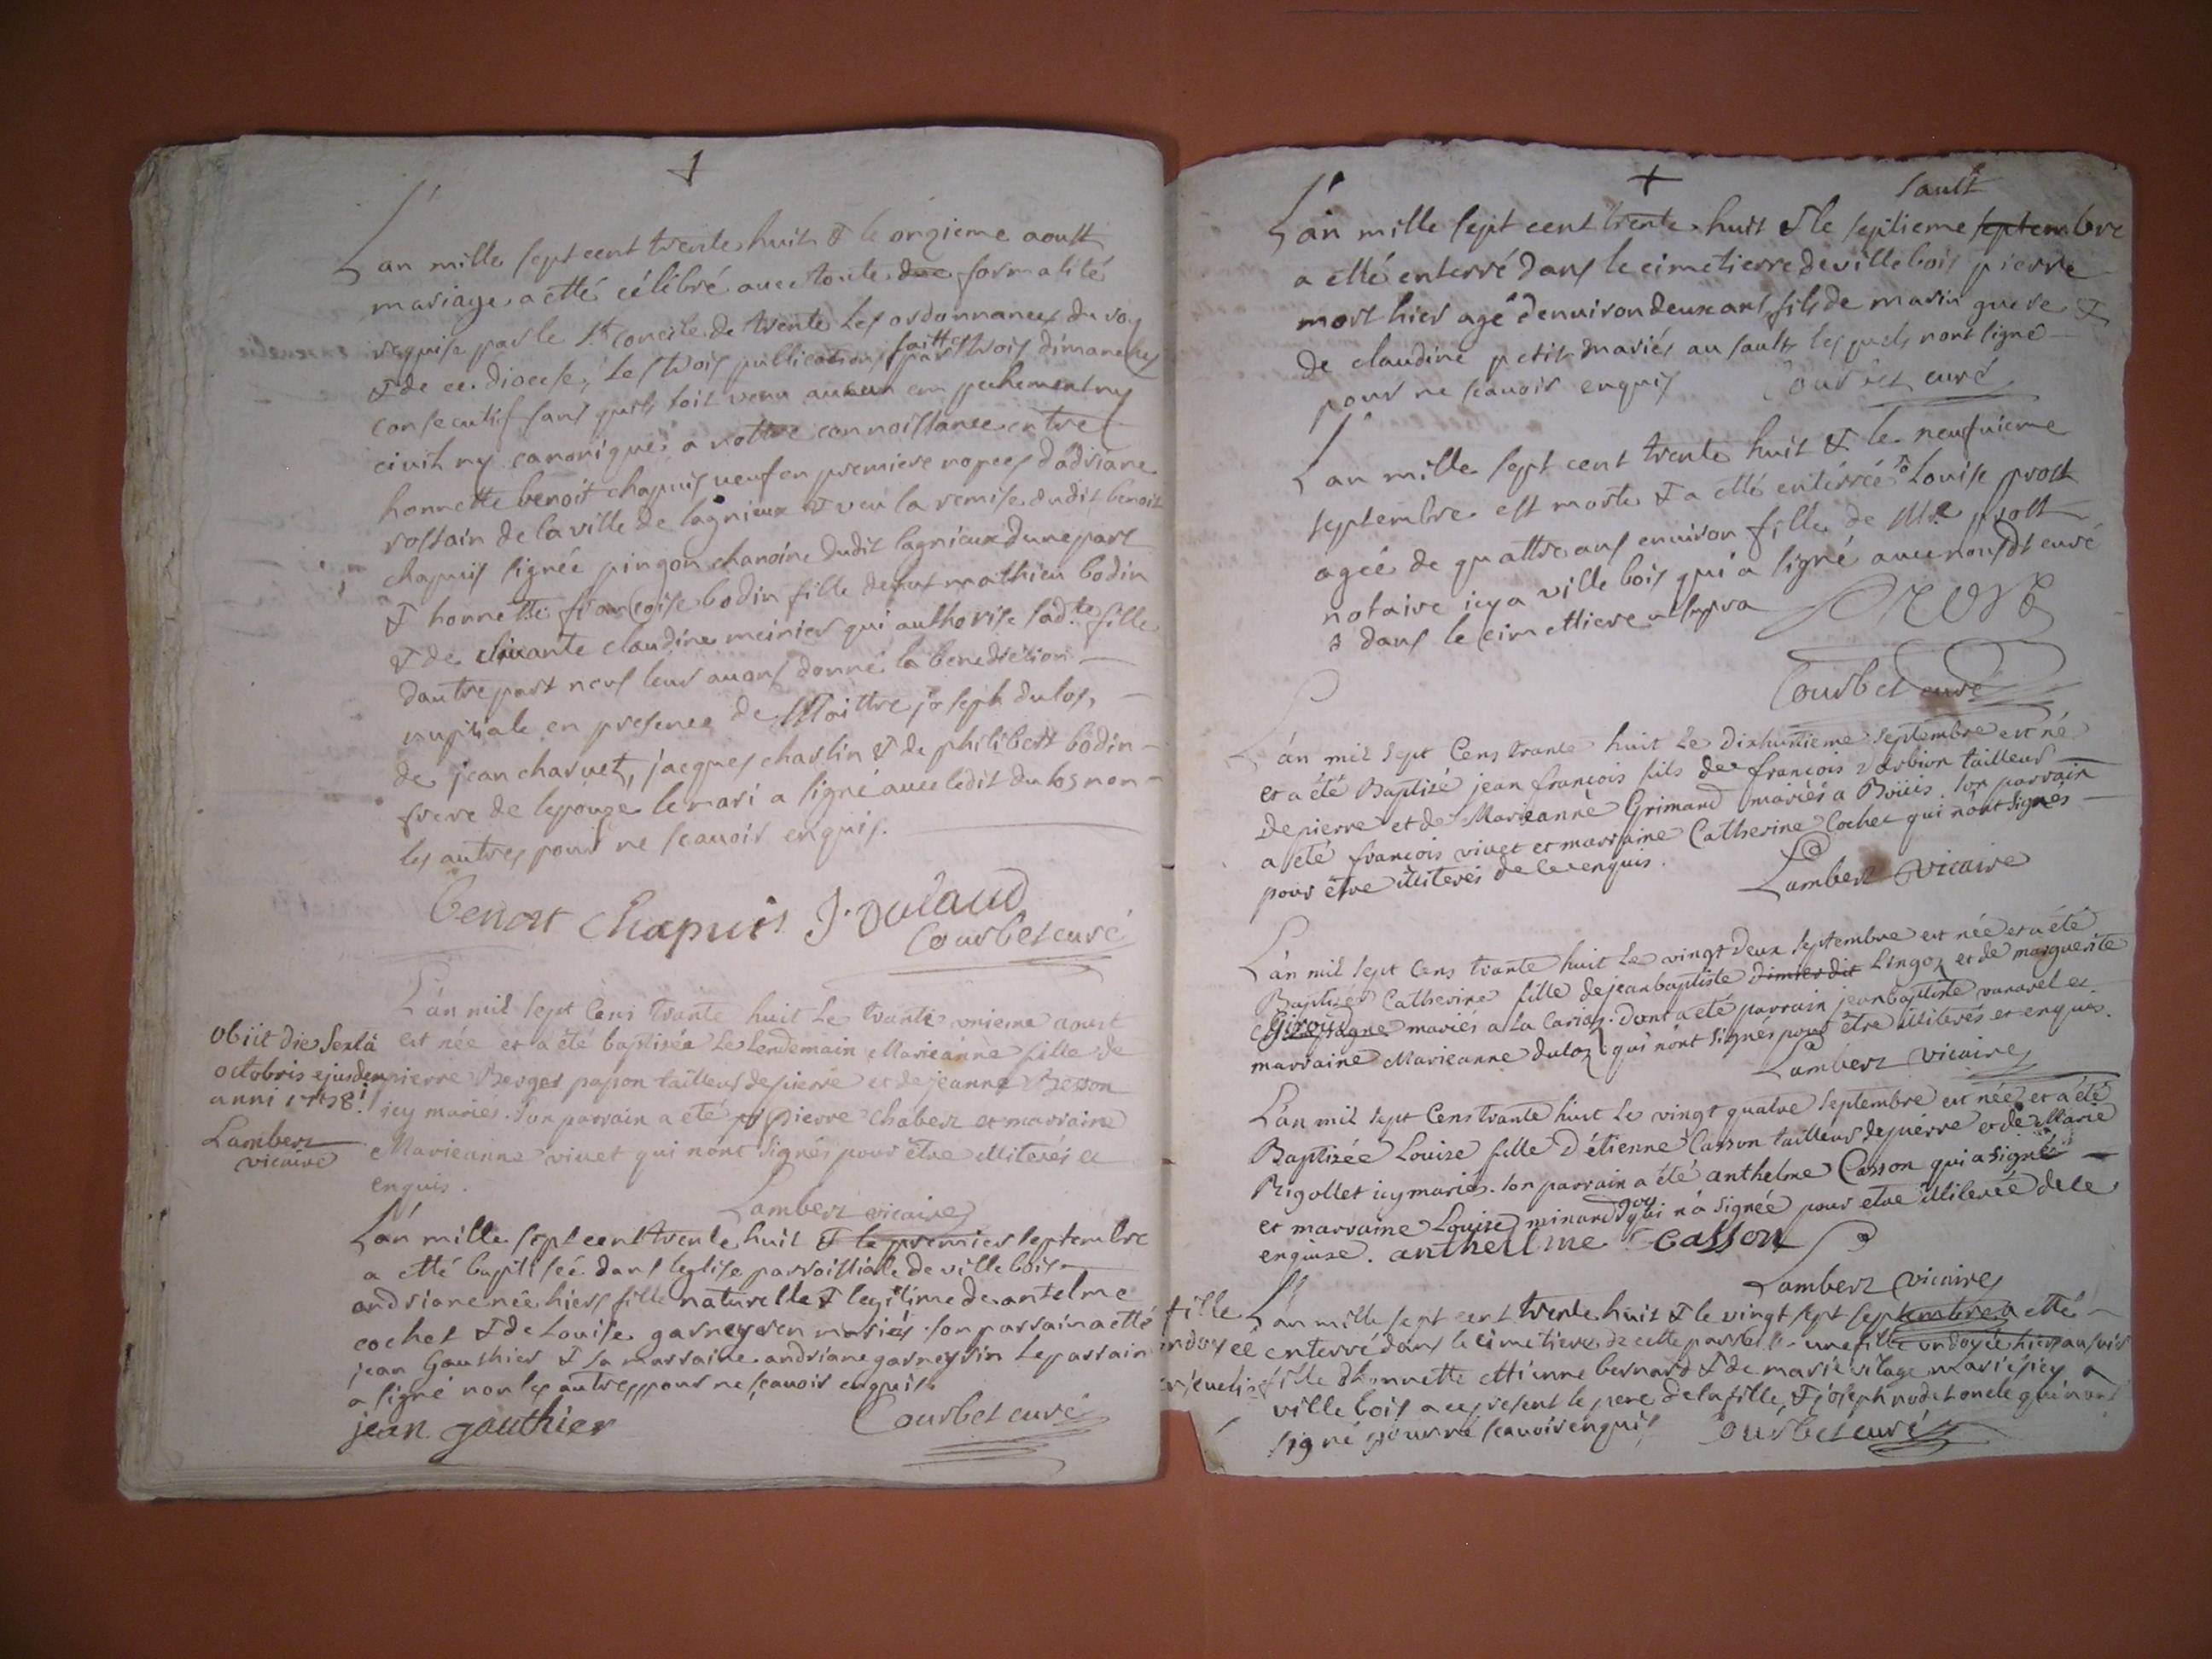 L'an mille sept cent trente huit & le onzieme aoust
mariage a etté célébré avec toute due formalité
requise par le St concile de trente les ordonnances du roy
& de ce diocese, les trois publications faittes par trois dimanches
consecutifs sans quils soit venu aucun empechement ny
civil ny canonique a nottre connoissance entre
honnette benoit chapuis veuf en premiere nopces dadriane
rostain de la ville de lagnieux & veu la remise dudit benoit
chapuis signée pingon chanoine dudit lagnieux dune part
& honnette francoise bodin fille de fut mathieu bodin
& de vivante claudine meinier qui authorise sad.te fille
dautre part nous leur avons donné la benediction
nuptiale en presence de Maittre joseph dulos,
de jean charvet, jacques charlin & de philibert bodin
frere de lepouze le mari a signé avec ledit dulos non
les autres pour ne scavoir enquis.
benoit chapuis J. dulaud
Courbet curé
L'an mil sept Cens trante huit Le trante unieme aoust
est née et a été baptisée Le Lendemain Marieanne fille de
pierre Berger papon tailleur de pierre et de jeanne Besson
icy mariés. son parrain a été pierre chabert et marraine
Marieanne vivet qui nont signés pour être illiterés et
enquis.
Lambert vicaire
obiit die Sextâ
octobris ejusdem
anni 1738.
Lambert
vicaire
L'an mille sept cent trente huit & le premier septembre
a etté baptisée dans leglise parroissiale de ville bois
andriane née hier fille naturelle & legitime de antelme
cochet & de Louise garneysen mariés. son parrain a etté
jean Gauthier & sa marraine andriane garneysin Le parrain
a signé non les autres pour ne scavoir enquis
jean gauthier Courbet curé
sault
L'an mille sept cent trente huit & le septieme septembre
a etté enterré dans le cimetierre de villebois pierre
mort hier agé denuiron deux ans, fils de marin guere &
de claudine petit mariés au sault lesquels nont signé
pour ne scavoir enquis Courbet curé
L'an mille sept cent trente huit & le neufuieme
septembre est morte & a etté entérréé Louise prost
agéé de quattre ans enuiron fille de Me prost
notaire icy a ville bois qui a signé avec nous dt curé
dans le cimettiere ut supra PROST
Courbet curé
L'an mil sept Cens trante huit Le Dixhuitieme septembre est né
et a été Baptizé jean francois fils de francois Dorbion tailleur
de pierre et de Marieanne Grimand mariés a Boüis. son parrain
a été francois vivet et marraine Catherine Cochet qui nont signés
pour être illiterés de ce enquis.
Lambert vicaire
L'an mil sept Cens trante huit Le vingt Deux septembre est née et a été
Baptizée Catherine fille de jean baptiste dimier dit Lingoz et de marguerite
Giroud mariés a la Carioz. dont a été parrain jean baptiste vanavel et
marraine Marieanne duloz qui nont signés pour être illiterés et enquis.
Lambert vicaire
L'an mil sept Cens trante huit Le vingt quatre septembre est née et a été
Baptizée Louize fille D'étienne Casson tailleur de pierre et de Marie
Rigollet icy mariés. son parrain a été anthelme Casson qui a signé
et marraine Louize minand qui n'a signée pour etre illiterée de ce
enquise. anthelme casson
Lambert vicaire
fille
ondoyéé
enseuelie
L'an mille sept cent trente huit & le vingt sept septembre a etté
enterré dans le cimetiere de cette parroisse une fille ondoyée hier au soir
fille dhonnette ettienne bernard & de marie vilage mariés icy a
ville bois a ce present le pere de la fille, & joseph nodet oncle qui nont
signé pour ne scavoir enquis Courbet curé